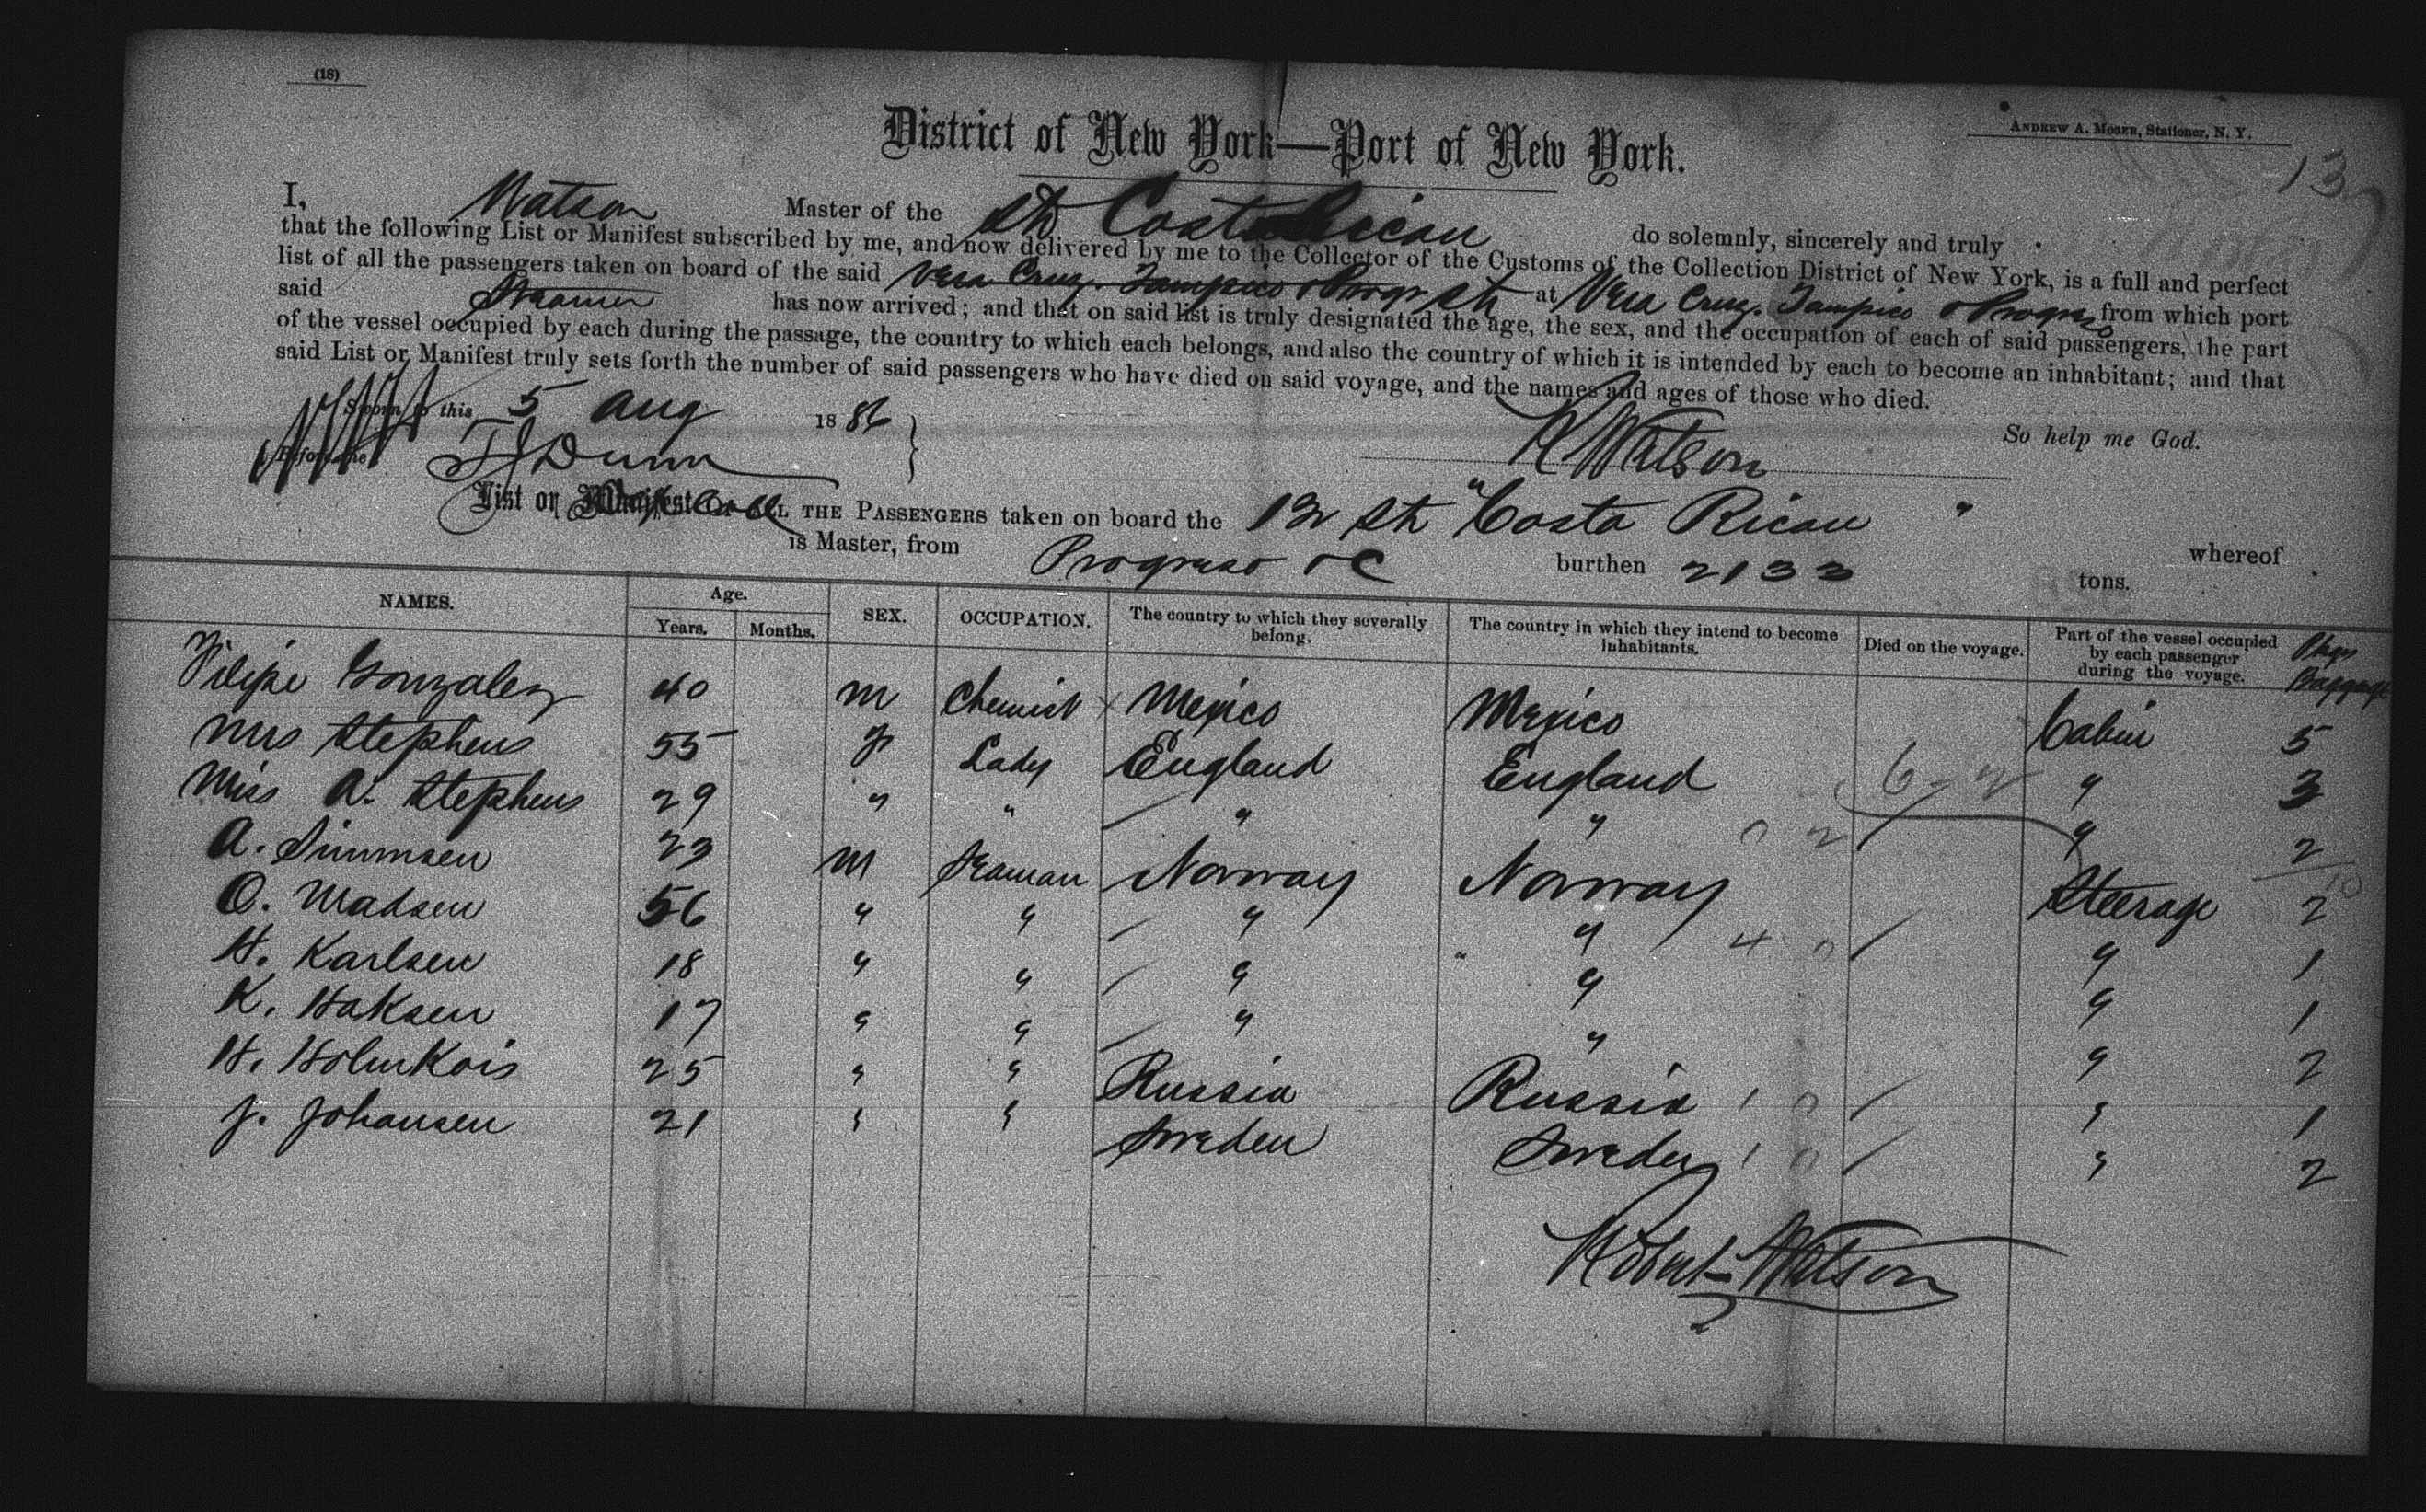 (18)
ANDREW A. MOSER, Stationer, N. Y.
13
District of New York—Port of New York.
I, Watson Master of the Str Costa Rican do solemnly, sincerely and truly
that the following List or Manifest subscribed by me, and now delivered by me to the Collector of the Customs of the Collection District of New York, is a full and perfect
list of all the passengers taken on board of the said Vera Cruz. Tampico & Progr Str at Vera Cruz. Tampico & Progreso from which port
said Steamer has now arrived; and that on said list is truly designated the age, the sex, and the occupation of each of said passengers, the part
of the vessel occupied by each during the passage, the country to which each belongs, and also the country of which it is intended by each to become an inhabitant; and that
said List or Manifest truly sets forth the number of said passengers who have died on said voyage, and the names and ages of those who died.
Sworn to this 5 Aug 1886
So help me God.
Before me TJ Dunn
R Watson
List or Manifest OF ALL THE PASSENGERS taken on board the Br Str "Costa Rican" whereof
is Master, from Progreso &c burthen 2133 tons.
NAMES. Age. SEX. OCCUPATION. The country to which they severally belong. The country in which they intend to become inhabitants. Died on the voyage. Part of the vessel occupied by each passenger during the voyage. Pkgs Baggage
Years. Months.
Filipe Gonzalez 40 M Chemist Mexico Mexico Cabin 5
Mrs Stephens 55 F Lady England England " 3
Miss A. Stephens 29 " " " " " 2
A. Simmsen 23 M Seaman Norway Norway Steerage 2
O. Madsen 56 " " " " " 1
H. Karlsen 18 " " " " " 1
K. Haksen 17 " " " " " 2
H. Holmkois 25 " " Russia Russia 1 0 " 1
J. Johansen 21 " " Sweden Sweden 1 0 " 2
Robert Watson